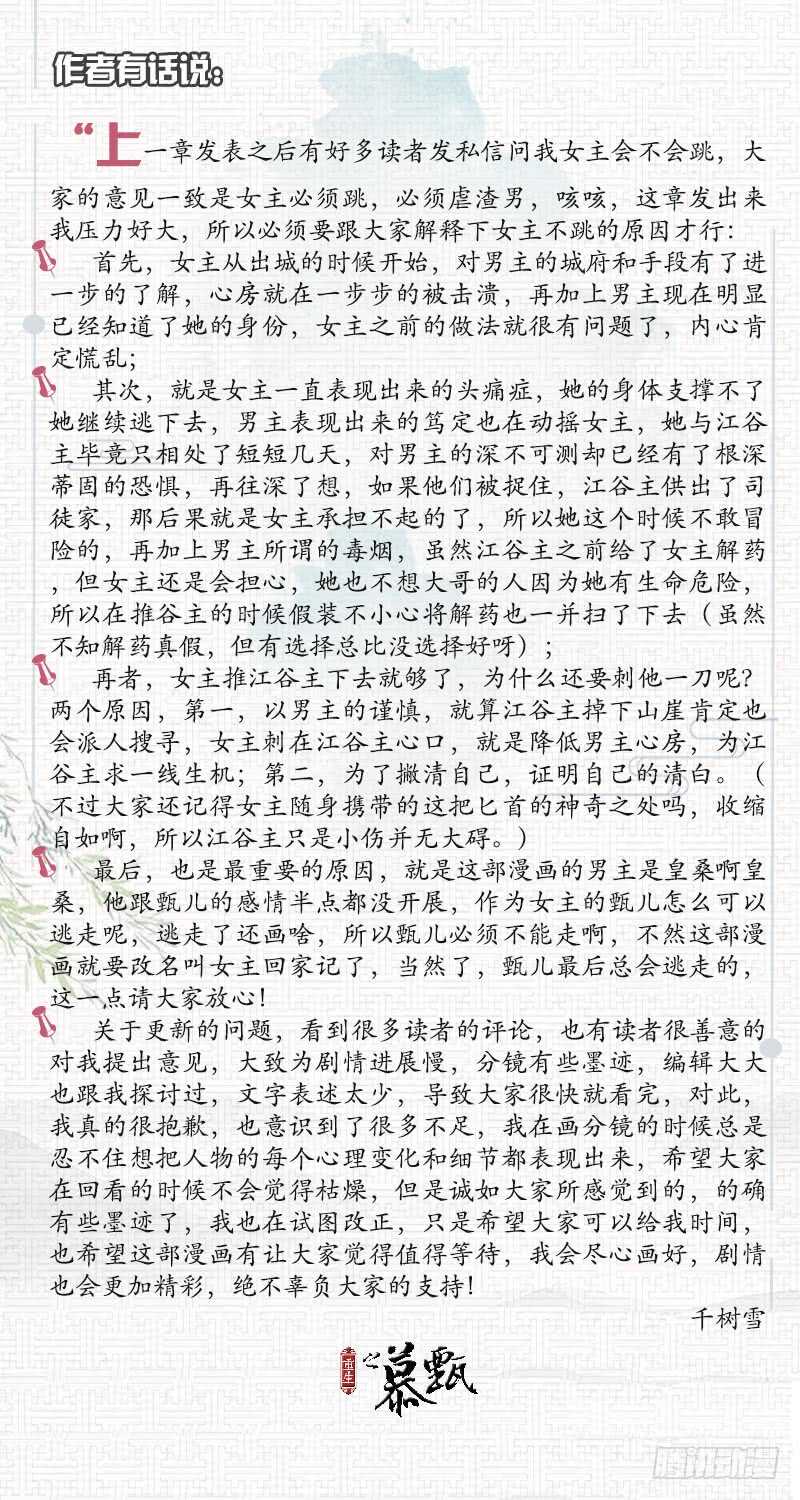 作者有话说：
“上一章发表之后有好多读者发私信问我女主会不会跳，大
家的意见一致是女主必须跳，必须虐渣男，咳咳，这章发出来
我压力好大，所以必须要跟大家解释下女主不跳的原因才行：
首先，女主从出城的时候开始，对男主的城府和手段有了进
一步的了解，心房就在一步步的被击溃，再加上男主现在明显
已经知道了她的身份，女主之前的做法就很有问题了，内心肯
定慌乱；
其次，就是女主一直表现出来的头痛症，她的身体支撑不了
她继续逃下去，男主表现出来的笃定也在动摇女主，她与江谷
主毕竟只相处了短短几天，对男主的深不可测却已经有了根深
蒂固的恐惧，再往深了想，如果他们被捉住，江谷主供出了司
徒家，那后果就是女主承担不起的了，所以她这个时候不敢冒
险的，再加上男主所谓的毒烟，虽然江谷主之前给了女主解药
，但女主还是会担心，她也不想大哥的人因为她有生命危险，
所以在推谷主的时候假装不小心将解药也一并扫了下去（虽然
不知解药真假，但有选择总比没选择好呀）；
再者，女主推江谷主下去就够了，为什么还要刺他一刀呢？
两个原因，第一，以男主的谨慎，就算江谷主掉下山崖肯定也
会派人搜寻，女主刺在江谷主心口，就是降低男主心房，为江
谷主求一线生机；第二，为了撇清自己，证明自己的清白。（
不过大家还记得女主随身携带的这把匕首的神奇之处吗，收缩
自如啊，所以江谷主只是小伤并无大碍。）
最后，也是最重要的原因，就是这部漫画的男主是皇桑啊皇
桑，他跟甄儿的感情半点都没开展，作为女主的甄儿怎么可以
逃走呢，逃走了还画啥，所以甄儿必须不能走啊，不然这部漫
画就要改名叫女主回家记了，当然了，甄儿最后总会逃走的，
这一点请大家放心！
关于更新的问题，看到很多读者的评论，也有读者很善意的
对我提出意见，大致为剧情进展慢，分镜有些墨迹，编辑大大
也跟我探讨过，文字表述太少，导致大家很快就看完，对此，
我真的很抱歉，也意识到了很多不足，我在画分镜的时候总是
忍不住想把人物的每个心理变化和细节都表现出来，希望大家
在回看的时候不会觉得枯燥，但是诚如大家所感觉到的，的确
有些墨迹了，我也在试图改正，只是希望大家可以给我时间，
也希望这部漫画有让大家觉得值得等待，我会尽心画好，剧情
也会更加精彩，绝不辜负大家的支持！
千树雪
重生之慕甄
腾讯动漫